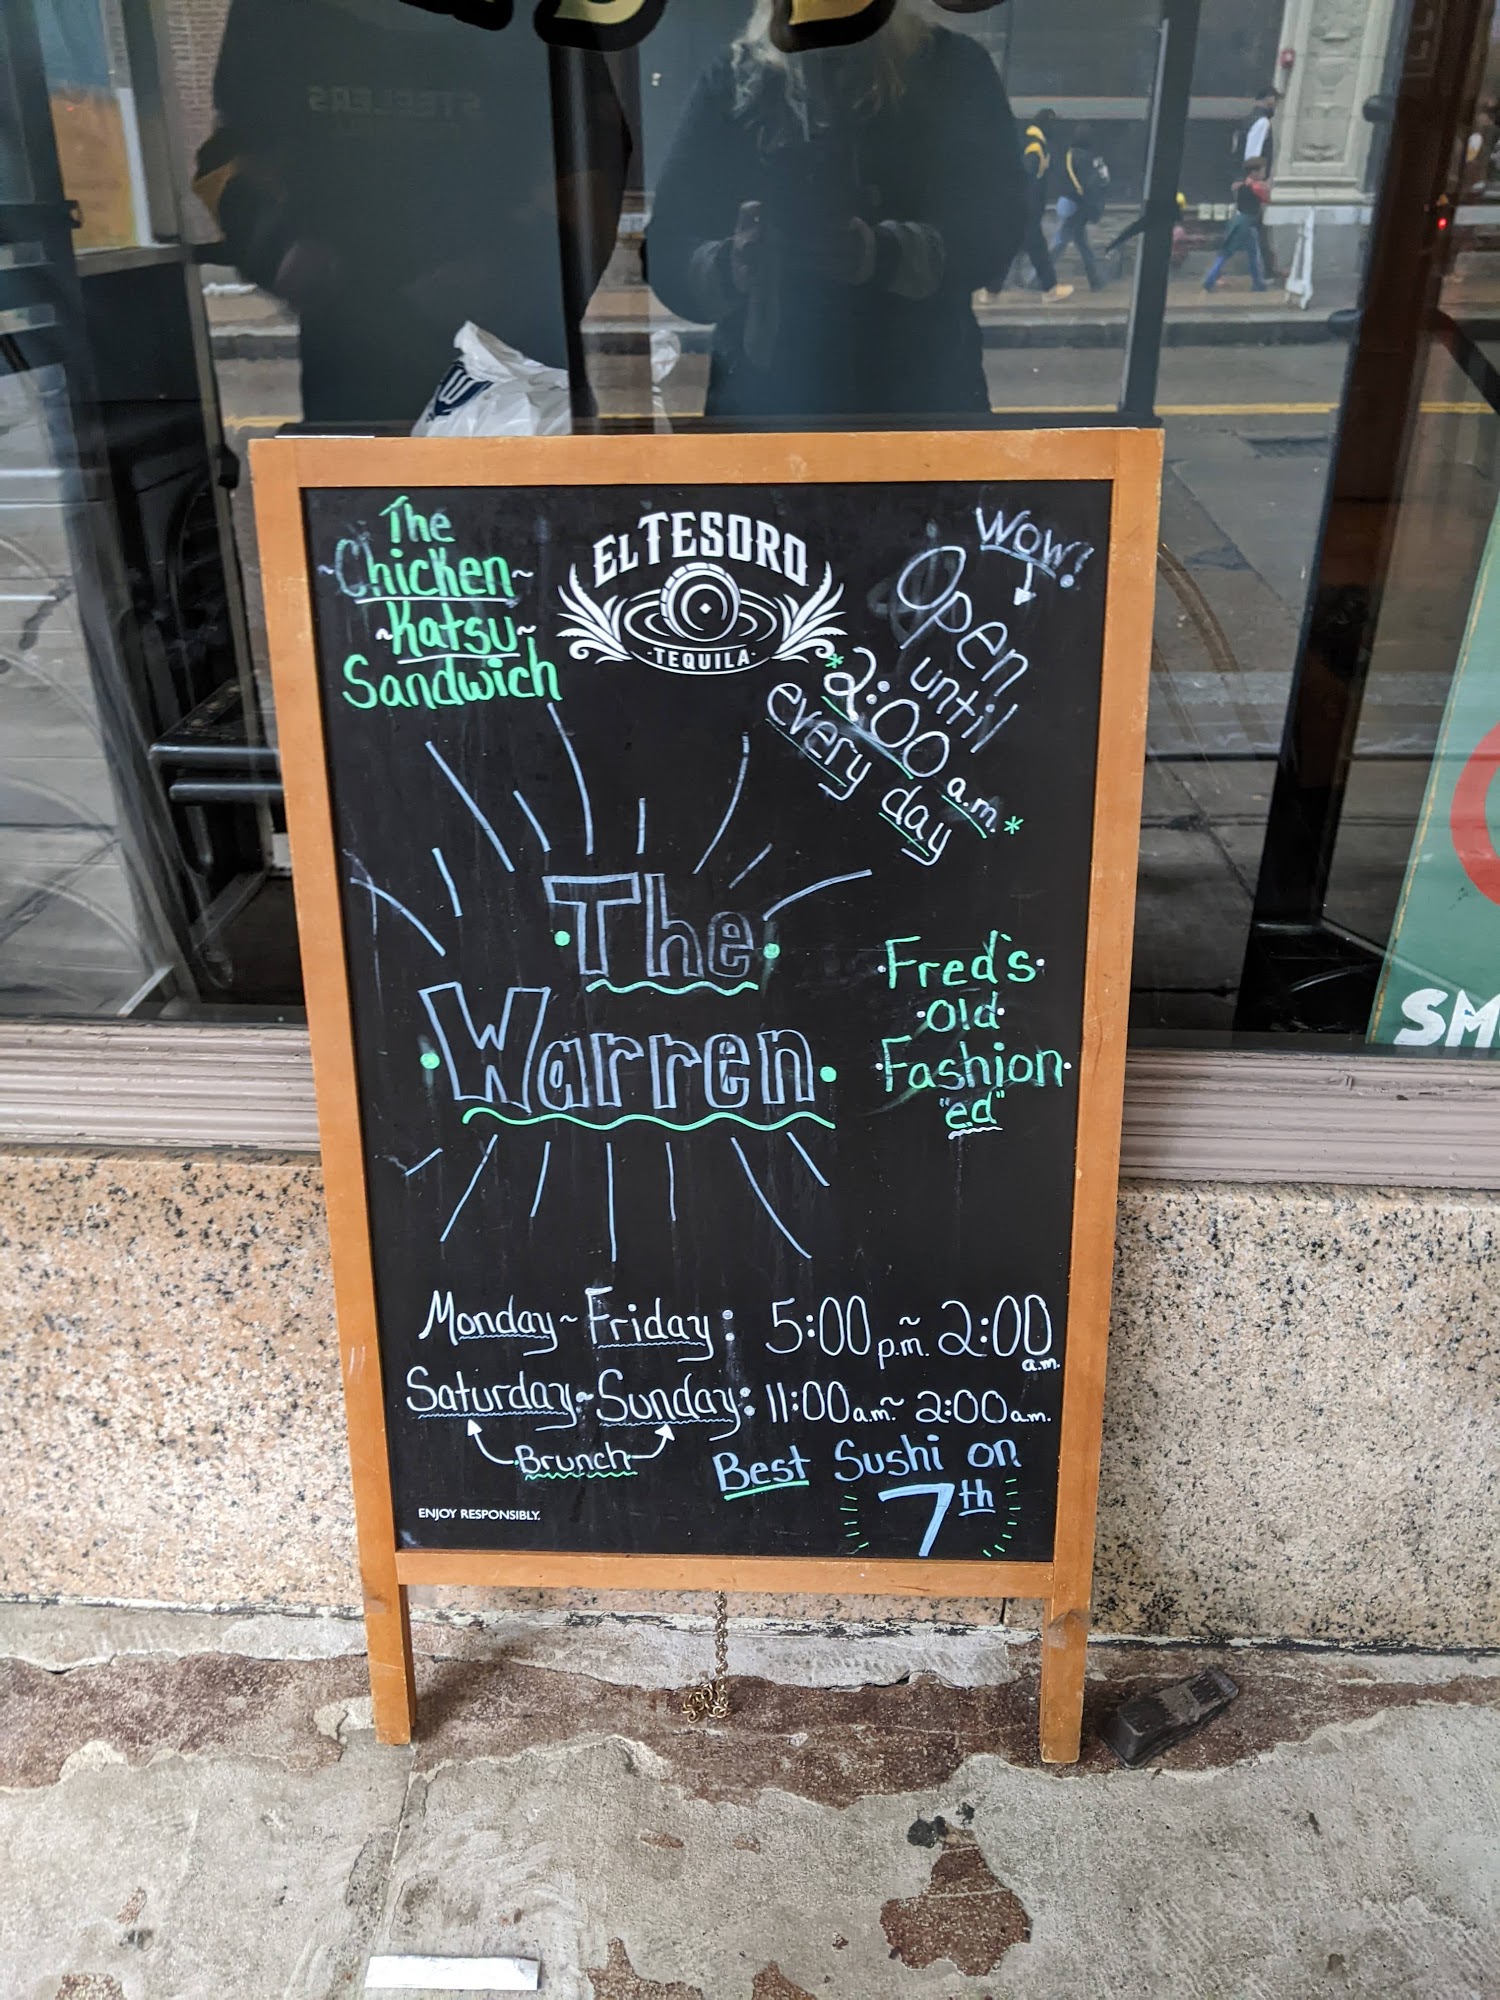 The
~Chicken~
~Katsu~
Sandwich
EL TESORO
·TEQUILA·
Wow!
Open
until
*2:00 a.m.*
every day
The
Warren
Fred's
Old
Fashion
"ed"
Monday~Friday: 5:00 p.m.~ 2:00 a.m.
Saturday~Sunday: 11:00 a.m.~ 2:00 a.m.
Brunch
Best Sushi on
7th
ENJOY RESPONSIBLY.
STEELERS
W
SM